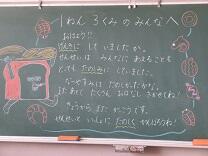 1ねん3くみのみんなへ
おはよう!!
げんきに していましたか。
せんせいは みんなに あえることを
とても たのしみに していました。
なつやすみは たのしかったかな。
また あとで たくさん おはなし きかせてね！
きょうから また がっこうです。
せんせいと いっしょに たのしく がんばろうね！